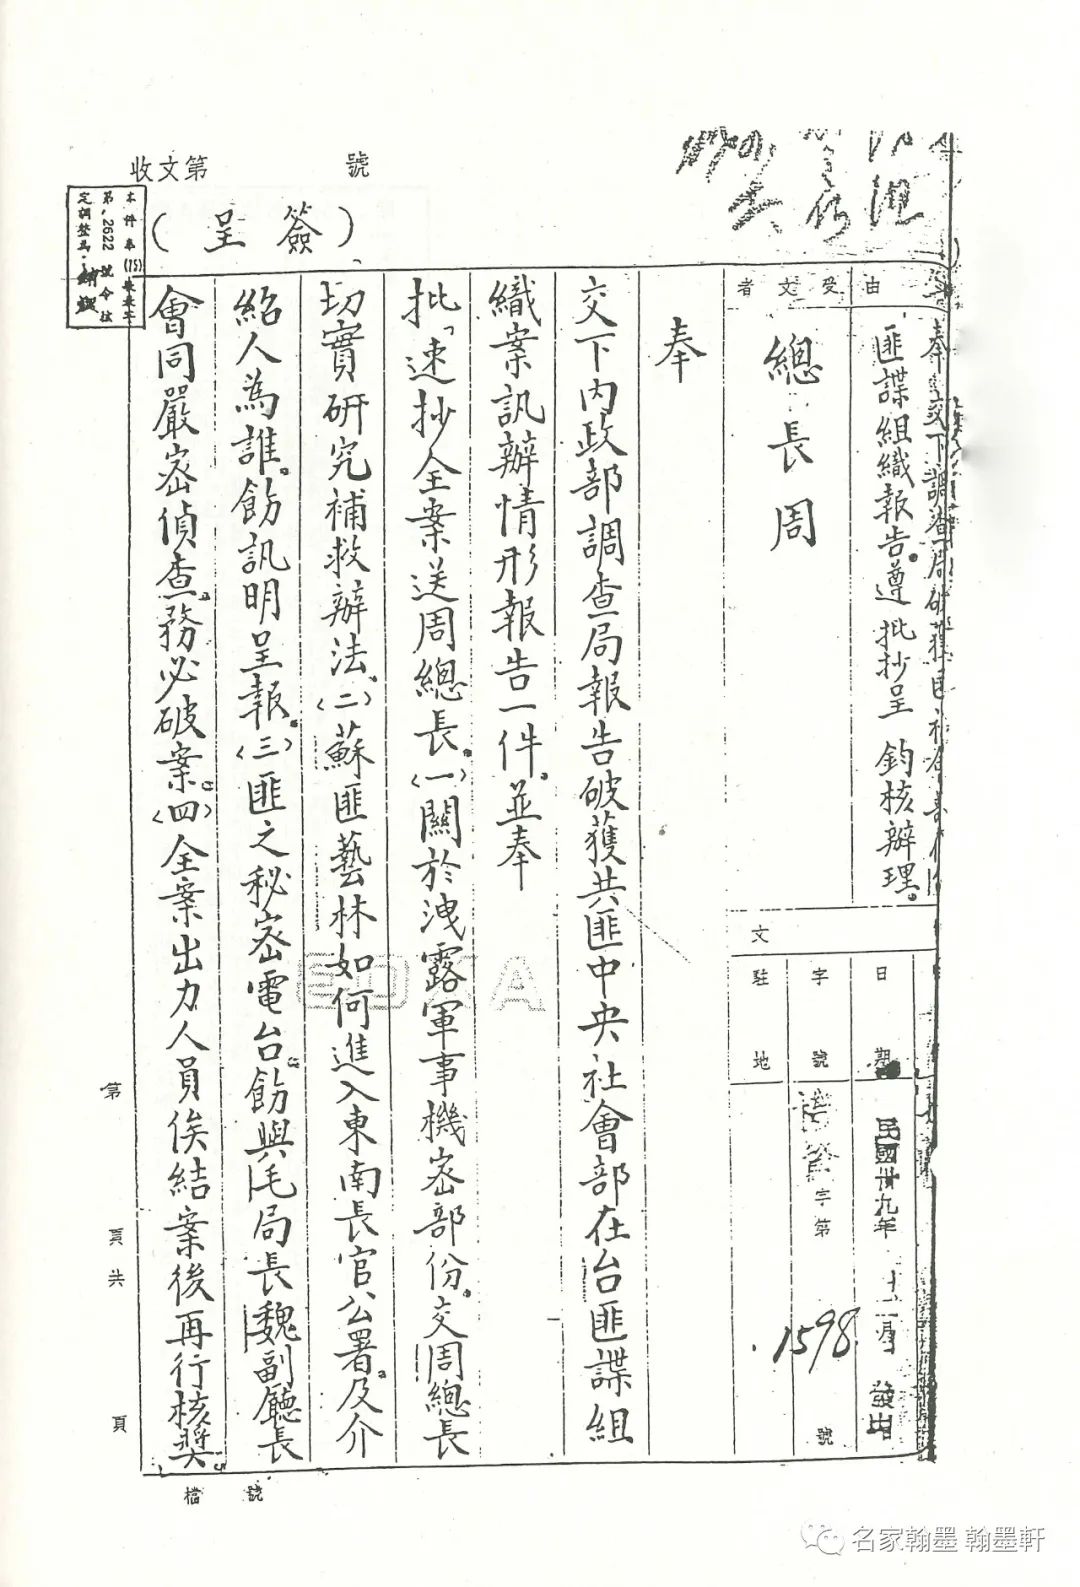 收文第 號
（簽呈）
由
奉交下調查局破獲匪
匪諜組織報告。遵批抄呈 鈞核辦理。
受文者
總長周
文
日期
民國卅九年十二月 發出
字號
字第1598號
駐地
奉
交下內政部調查局報告破獲共匪中央社會部在台匪諜組
織案訊辦情形報告一件。並奉
批「速抄全案送周總長。(一)關於洩露軍事機密部份。交周總長
切實研究補救辦法。(二)蘇匪藝林如何進入東南長官公署。及介
紹人為誰。飭訊明呈報。(三)匪之秘密電台。飭與毛局長魏副廳長
會同嚴密偵查。務必破案。(四)全案出力人員俟結案後再行核獎。
第 頁共 頁
檔號
EOXA
名家翰墨 翰墨軒